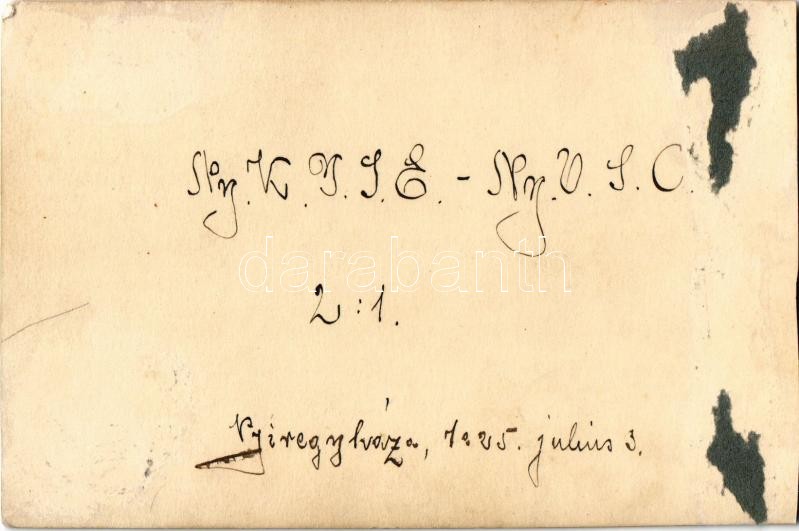 Ny.K.T.S.E. - Ny.V.S.C.
darabanth
2:1.
Nyiregyháza, 1925. julius 3.